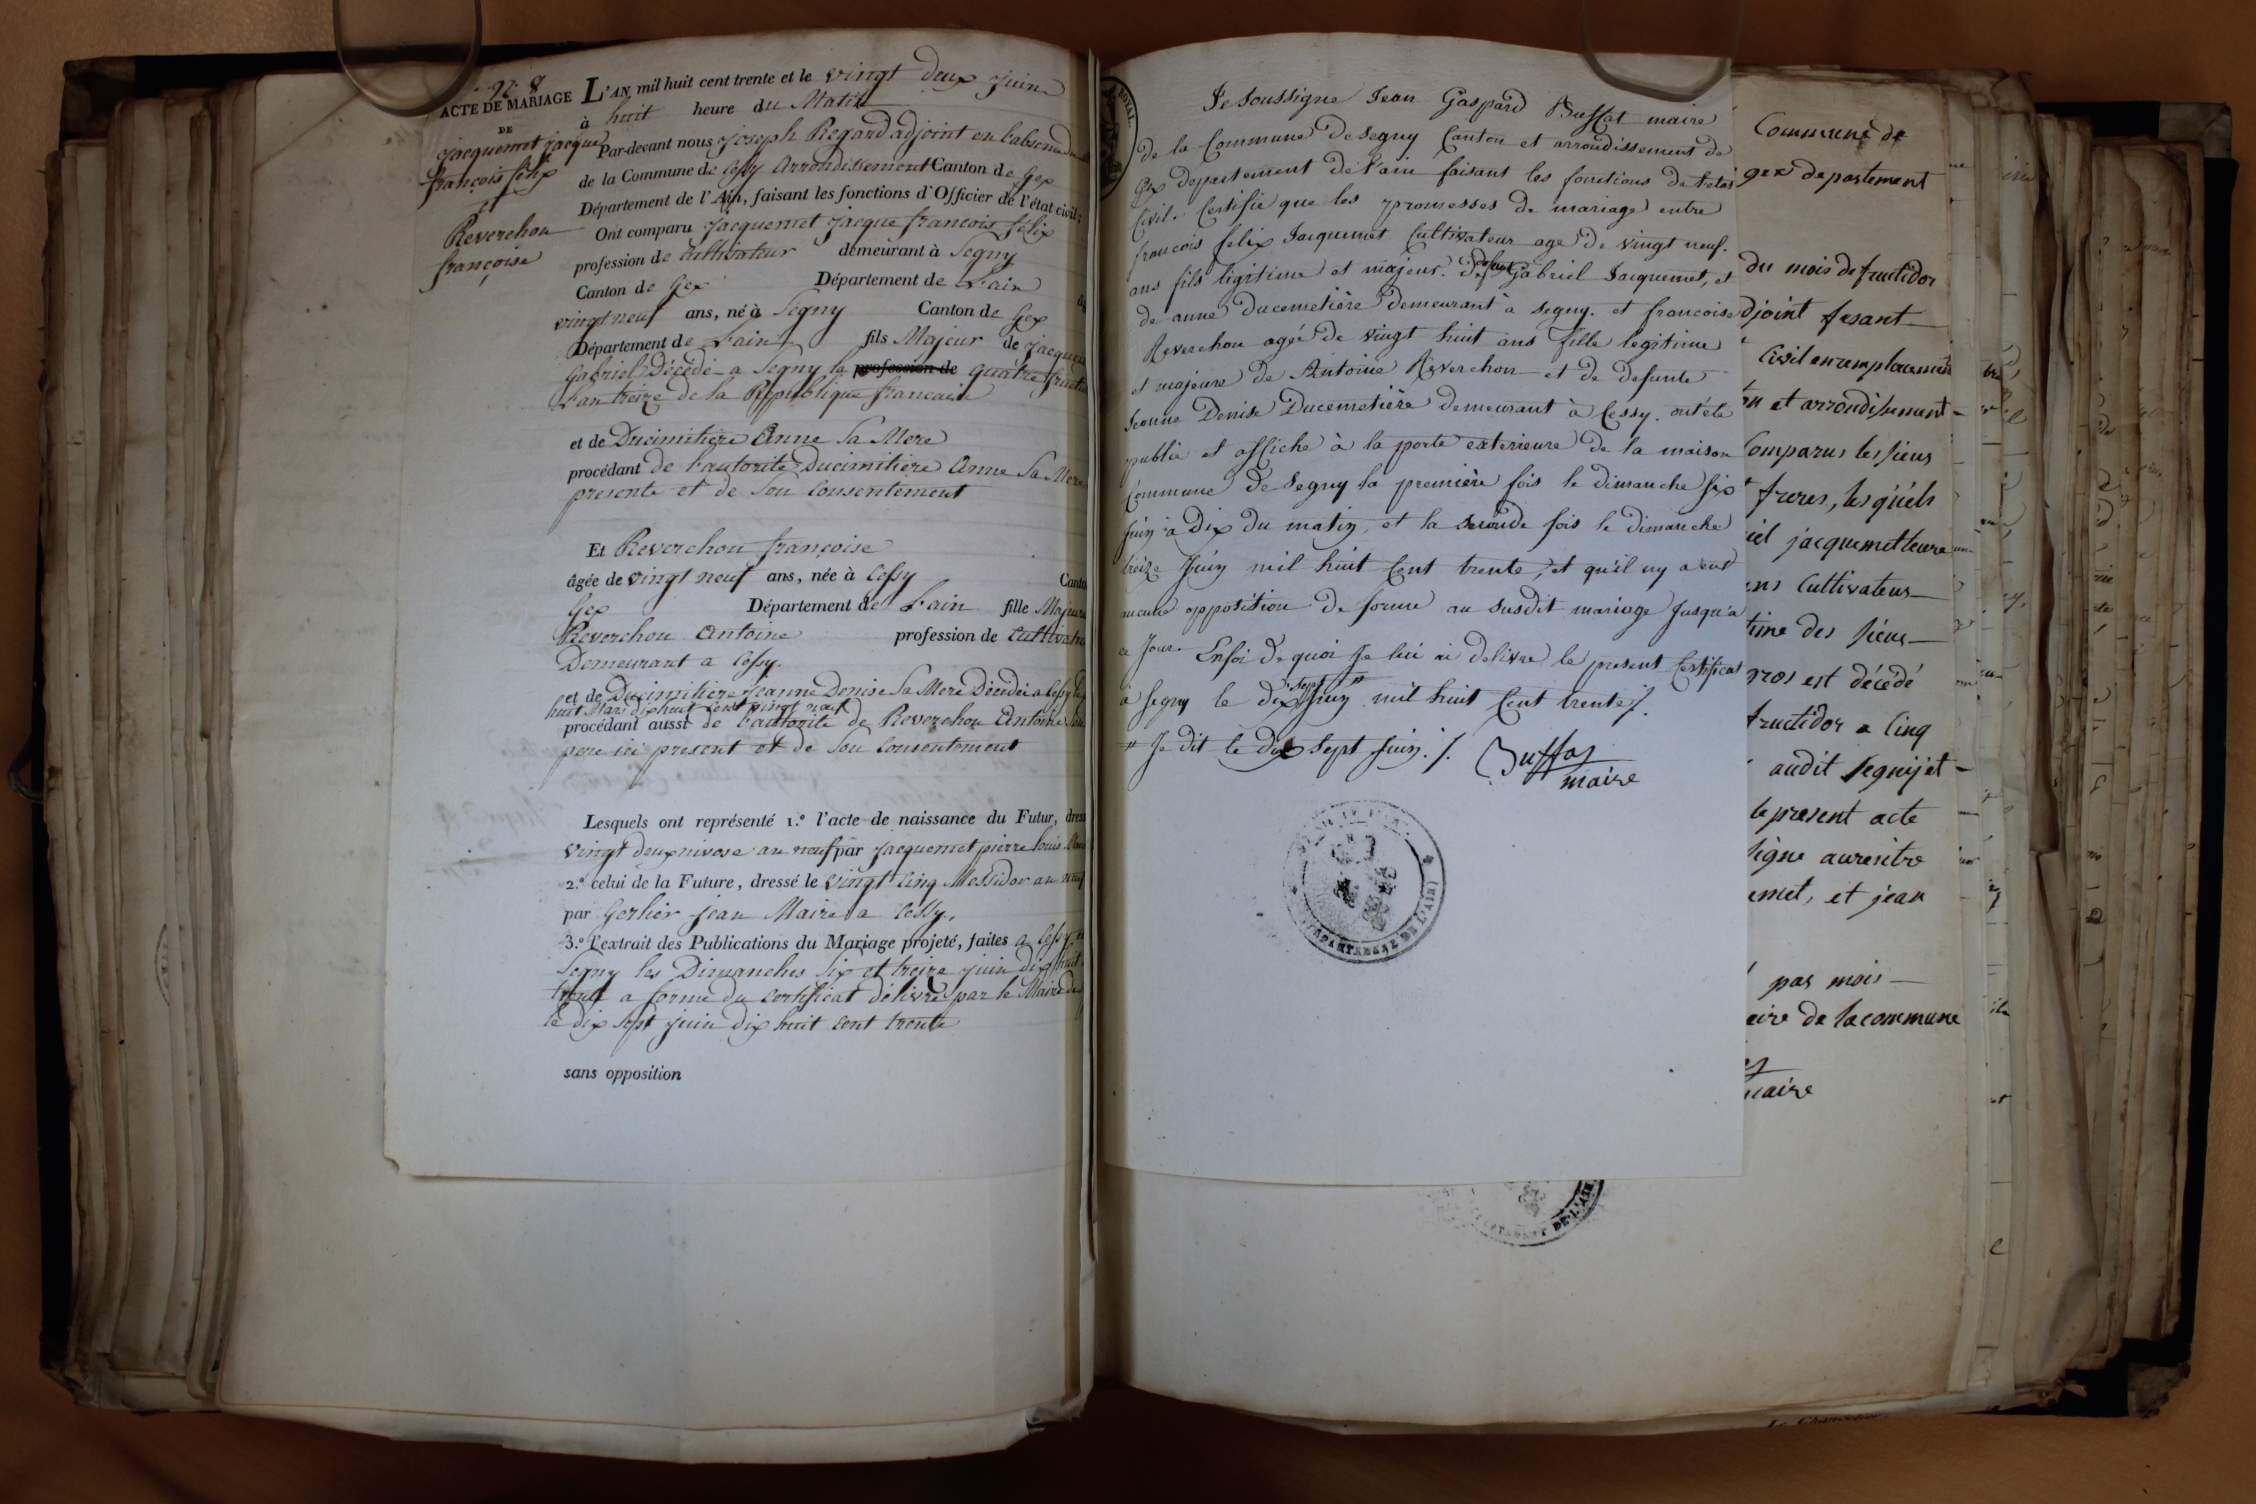 N° 8
ACTE DE MARIAGE
DE
jacquemet jacque
françois felix
et
Reverchon
françoise
L'AN mil huit cent trente et le vingt deux juin
à huit heure du Matin
Par-devant nous joseph Regard adjoint en l'absence du
de la Commune de Cessy arrondissement Canton de Gex
Département de l'Ain, faisant les fonctions d'Officier de l'état civil;
Ont comparu jacquemet jacque francois felix
profession de cultivateur demeurant à Segny
Canton de Gex Département de L'ain
vingt neuf ans, né à Segny Canton de Gex
Département de L'ain fils Majeur de jacquem
Gabriel Décédé a Segny le profession de quatre fructi
L'an treize de la République francaise
et de Ducimitière Anne Sa Mere
procédant de l'autorité Ducimitière Anne Sa Mere
presente et de Son Consentement
Et Reverchon françoise
âgée de vingt neuf ans, née à Cessy Canto
Gex Département de L'ain fille Majeure
Reverchon Antoine profession de Cultivate
Demeurant a Cessy.
et de Ducimitière Jeanne Denise Sa Mere Décédée a Cessy le
huit Mars dix huit Cent vingt neuf
procédant aussi de l'autorité de Reverchon Antoine Son
pere ici present et de Son Consentement
Lesquels ont représenté 1.° l'acte de naissance du Futur, dres
vingt deux nivose an neuf par jacquemet pierre louis Mair
2.° celui de la Future, dressé le vingt Cinq Messidor an neuf
par Gerlier jean Maire a Cessy,
3.° l'extrait des Publications du Mariage projeté, faites a Cessy et
Segny les Dimanches Six et treize juin dix huit
trente a forme du Certificat délivré par le Maire de
le dix sept juin dix huit cent trente
sans opposition
ROYAL
Je soussigne Jean Gaspard Buffat maire
de la Commune de Segny Canton et arrondissement de
Gex departement de l'ain faisant les fonctions de l'etat
Civil. Certifie que les promesses de mariage entre
francois felix Jacquemet Cultivateur age de vingt neuf.
ans fils legitime et majeur. de defunt Gabriel Jacquemet, et
de anne Ducemetière demeurant à segny. et francoise
Reverchon agée de vingt huit ans fille legitime
et majeure de Antoine Reverchon et de defunte
Jeanne Denise Ducemetière demeurant à Cessy. ont été
publié et affiche à la porte exterieure de la maison
Commune de Segny la première fois le dimanche six
juin à Dix du matin, et la seconde fois le dimanche
treize Juin mil huit Cent trente, et qu'il ny a eut
aucune opposition de forme au susdit mariage Jusqu'a
ce Jour. Enfoi de quoi Je lui ai delivre le present Certificat
à Segny le dix sept juin mil huit Cent trente /.
" Je dit le dix sept juin. /.
Buffat
maire
DEPARTEMENT DE L'AIN
Commune de
gex departement
du mois de fructidor
djoint fesant
Civil en remplacement
on et arrondissement
Comparus les sieurs
freres, les quels
iel jacquemet leure
ans Cultivateur
time des sieur
gros est décédé
fructidor a Cinq
audit segny et
le present acte
signe au registre
emet, et jean
pas mois
aire de la commune
maire
DE L'AIN